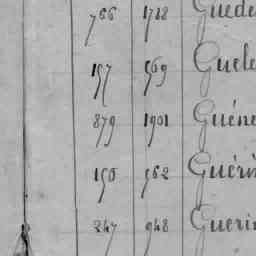 766 1728 Guede
197 569 Guele
879 1901 Guéne
150 562 Guéri
247 948 Gueri